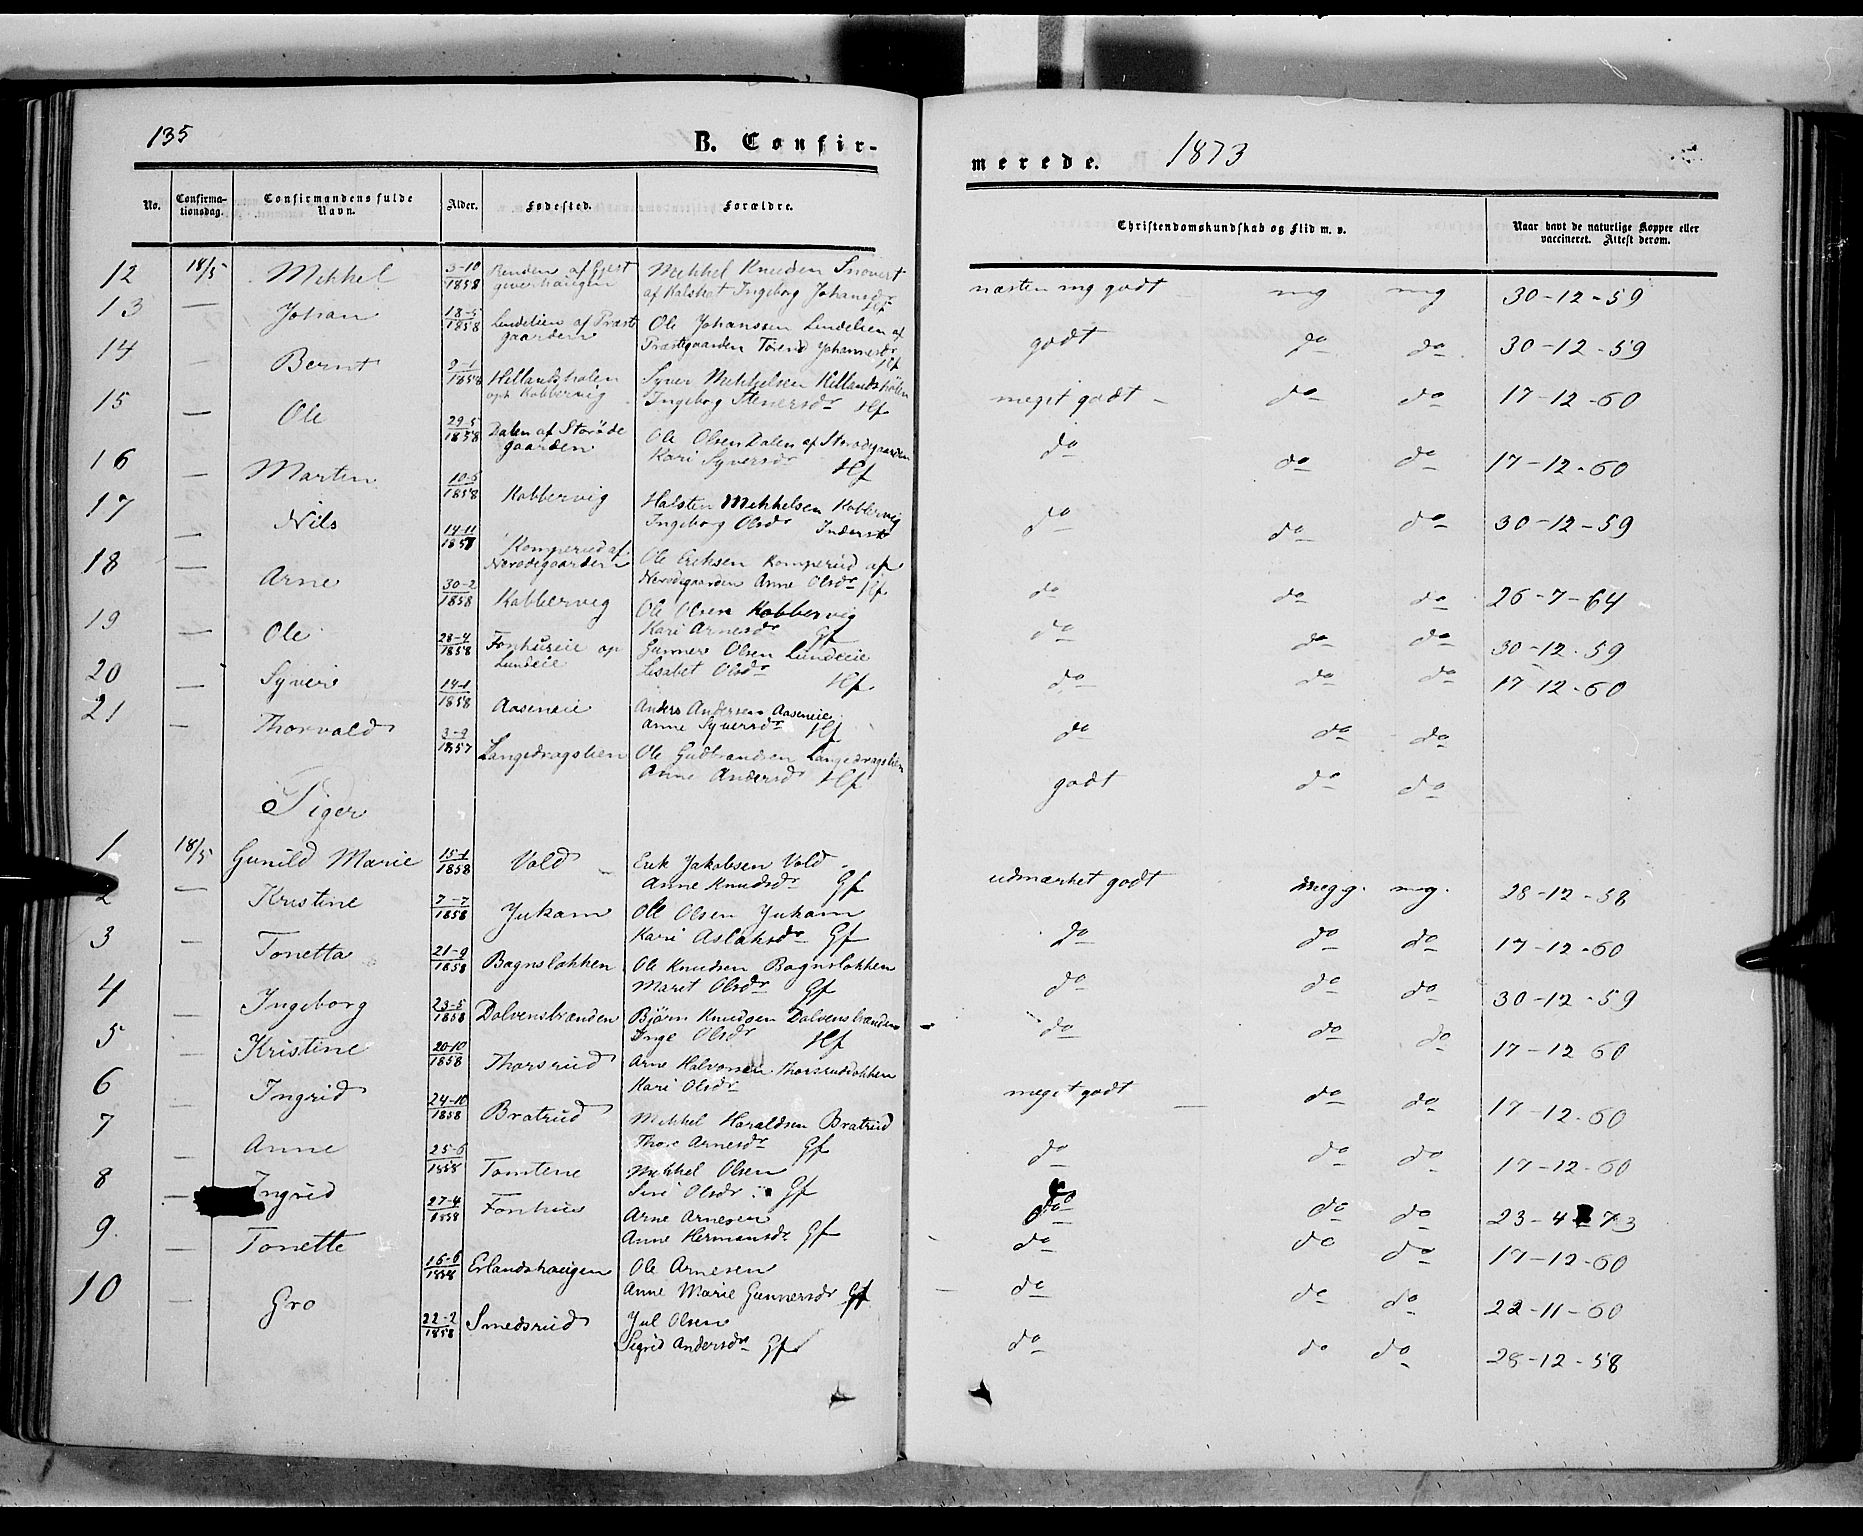 135
B. Confir-
merede. 1873
No. Confirma-tionsdag. Confirmandens fulde Navn. Alder. Fødested. Forældre. Christendomskundskab og Flid m. v. Naar havt de naturlige Kopper eller vaccineret. Attest derom.
12 18/5 Mikkel 3-10 1858 af Gjest Mikkel Knudsen næsten mg godt mg mg 30-12-59
giverhaugen af Kalshot Ingeborg Johansdr Hf
13 — Johan 18-5 1858 Lundelien af Præst Ole Johanssen Lundelien af godt do do 30-12-59
gaarden Præstegaarden Torend Johannesdr Hf
14 — Bernt 2-1 1858 Hellandshølen Syver Mikkelsen Hellandshølen meget godt do do 17-12-60
oph Kobbervig Ingeborg Stenersdr Hf
15 — Ole 29-5 1858 Dalen af Storøde Ole Olsen Dalen af Storødegaarden do do do 17-12-60
gaarden Kari Syversdr Hf
16 — Marten 10-5 1858 Kobbervig Halsten Mekkelsen Kobbervig do do do 30-12-59
Ingeborg Olsdr Inderst
17 — Nils 14-11 1857 Komperud af Ole Eriksen Komperud af do do do 26-7-64
Nørodegaarden Nørodegaarden Anne Olsdr Hf
18 — Arne 30-2 1858 Kobbervig Ole Olsen Kobbervig do do do 30-12-59
Kari Arnesdr Gf
19 — Ole 28-4 1858 Fonhuseie op Gunner Olsen Lundeie do do do 17 12-60
Lundeie Lisabet Olsdr Hf
20 — Syver 14-1 1858 Aaseneie Anders Andersen Aaseneie do do do
Anne Syversdr Hf
21 — Thorvald 3-9 1857 Langedragslien Ole Gudbrandsen Langedragslien godt do do
Anne Andersdr Hf
Piger
1 18/5 Gunild Marie 15-1 1858 Vold Erik Jakobsen Vold udmærket godt meg g. mg. 28-12-58
Anne Knudsdr Gf
2 — Kristine 7-7 1858 Jukam Ole Olsen Jukam do do do 17-12-60
Kari Aslaksdr Gf
3 — Tonetta 21-9 1858 Bagnsløkken Ole Knudsen Bagnsløkken do do do 30-12-59
Marit Olsdr Gf
4 — Ingeborg 23-5 1858 Dølvensbrænden Bjørn Knudsen Dølvensbrænden do do do 17-12 60
Inge Olsdr Hf
5 — Kristine 20-10 1858 Thorsrud Arne Halvorsen Thorsrudløkken meget godt do do 17-12-60
Kari Olsdr
6 — Ingrid 24-10 1858 Bratrud Mikkel Haraldsen Bratrud do do do 17-12-60
Thore Arnesdr Gf
7 — Anne 25-6 1858 Tomtene Mikkel Olsen do do do 23-4 73
Siri Olsdr Gf
8 — Ingrid 27-4 1858 Fonhus Arne Arnesen do do do 17-12-60
Anne Hermansdr Gf
9. — Tonette 16-6 1858 Erlandshaugen Ole Arnesen do do do 22-11-60
Anne Marie Gunnersdr Gf
10 — Gro 22-2 1858 Smedsrud Jul Olsen do do do 28-12-58
Sigrid Andersdr Gf